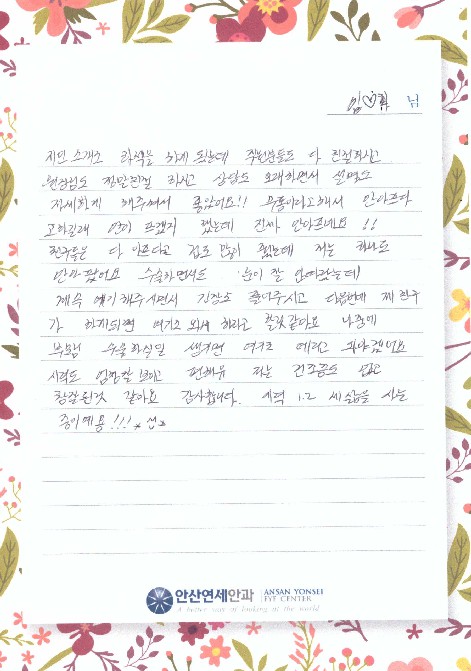 임♡휘 님
지인 소개로 라섹을 하게 됬는데 직원분들도 다 친절하시고
원장님도 정말친절 하시고 상담도 오래하면서 설명도
자세하게 해주셔서 좋았어요!! 무통이라고해서 안아프다
고하길래 언제 프겠지 했는데 진짜 안아프네요 !!
친구들은 다 아프다고 겁도 많이 줬는데 저는 하나도
안아팠어요 수술하면서도 눈이 잘 안떠졌는데
계속 얘기해주시면서 긴장도 풀어주시고 다음번에 제 친구
가 하게되면 여기로 와서 하라고 할것같아요 나중에
부모님 수술하실일 생기면 여기로 데리고 와야겠어요
시력도 엄청잘 보이고 편해유 저는 건조증도 없고
참잘된것 같아요 감사합니다. 시력 1.2 새삶을 사는
중이예용 !!!
안산연세안과 ANSAN YONSEI
EYE CENTER
A better way of looking at the world